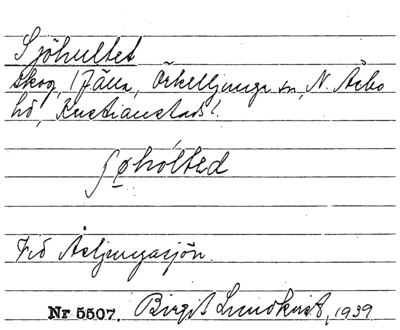 Sjöhultet
Skog, i Fälla, Örkelljunga sn, N. Åsbo
hd, Kristianstads l.
ʃøhòlted
Vid Åsljungasjön.
Nr 5507. Birgit Lundkvist, 1939